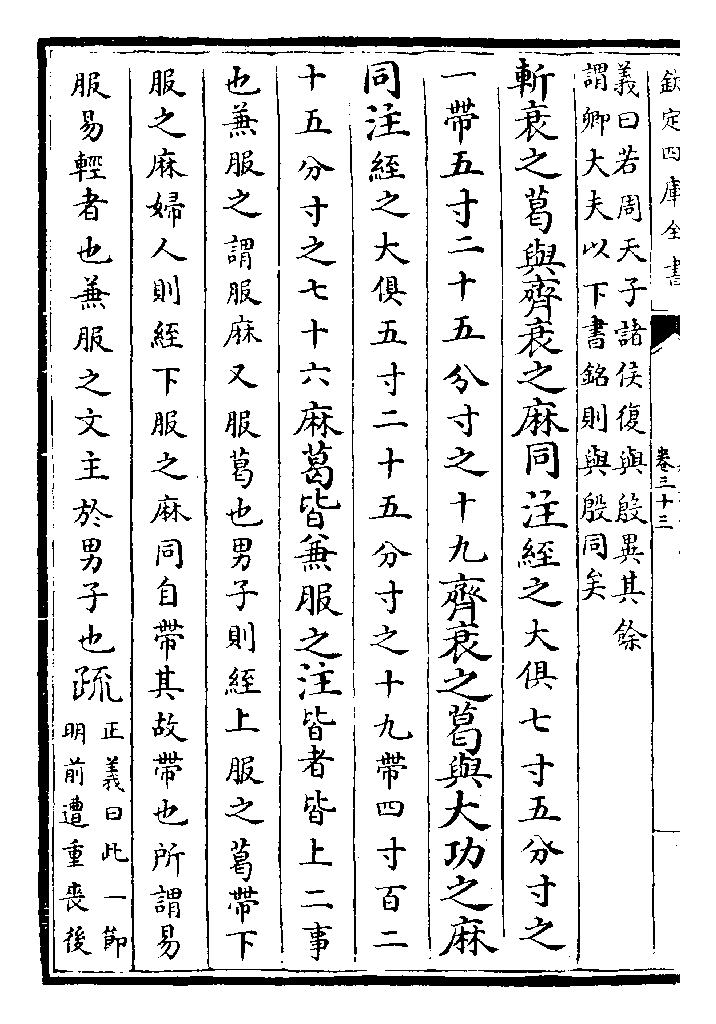 欽定四庫全書
卷三十三
義曰若周天子諸侯復與殷異其餘
謂卿大夫以下書銘則與殷同矣
斬衰之葛與齊衰之麻同注絰之大俱七寸五分寸之
一帶五寸二十五分寸之十九齊衰之葛與大功之麻
同注絰之大俱五寸二十五分寸之十九帶四寸百二
十五分寸之七十六麻葛皆兼服之注皆者皆上二事
也兼服之謂服麻又服葛也男子則絰上服之葛帶下
服之麻婦人則絰下服之麻同自帶其故帶也所謂易
服易輕者也兼服之文主於男子也疏
正義曰此一節
明前遭重喪後